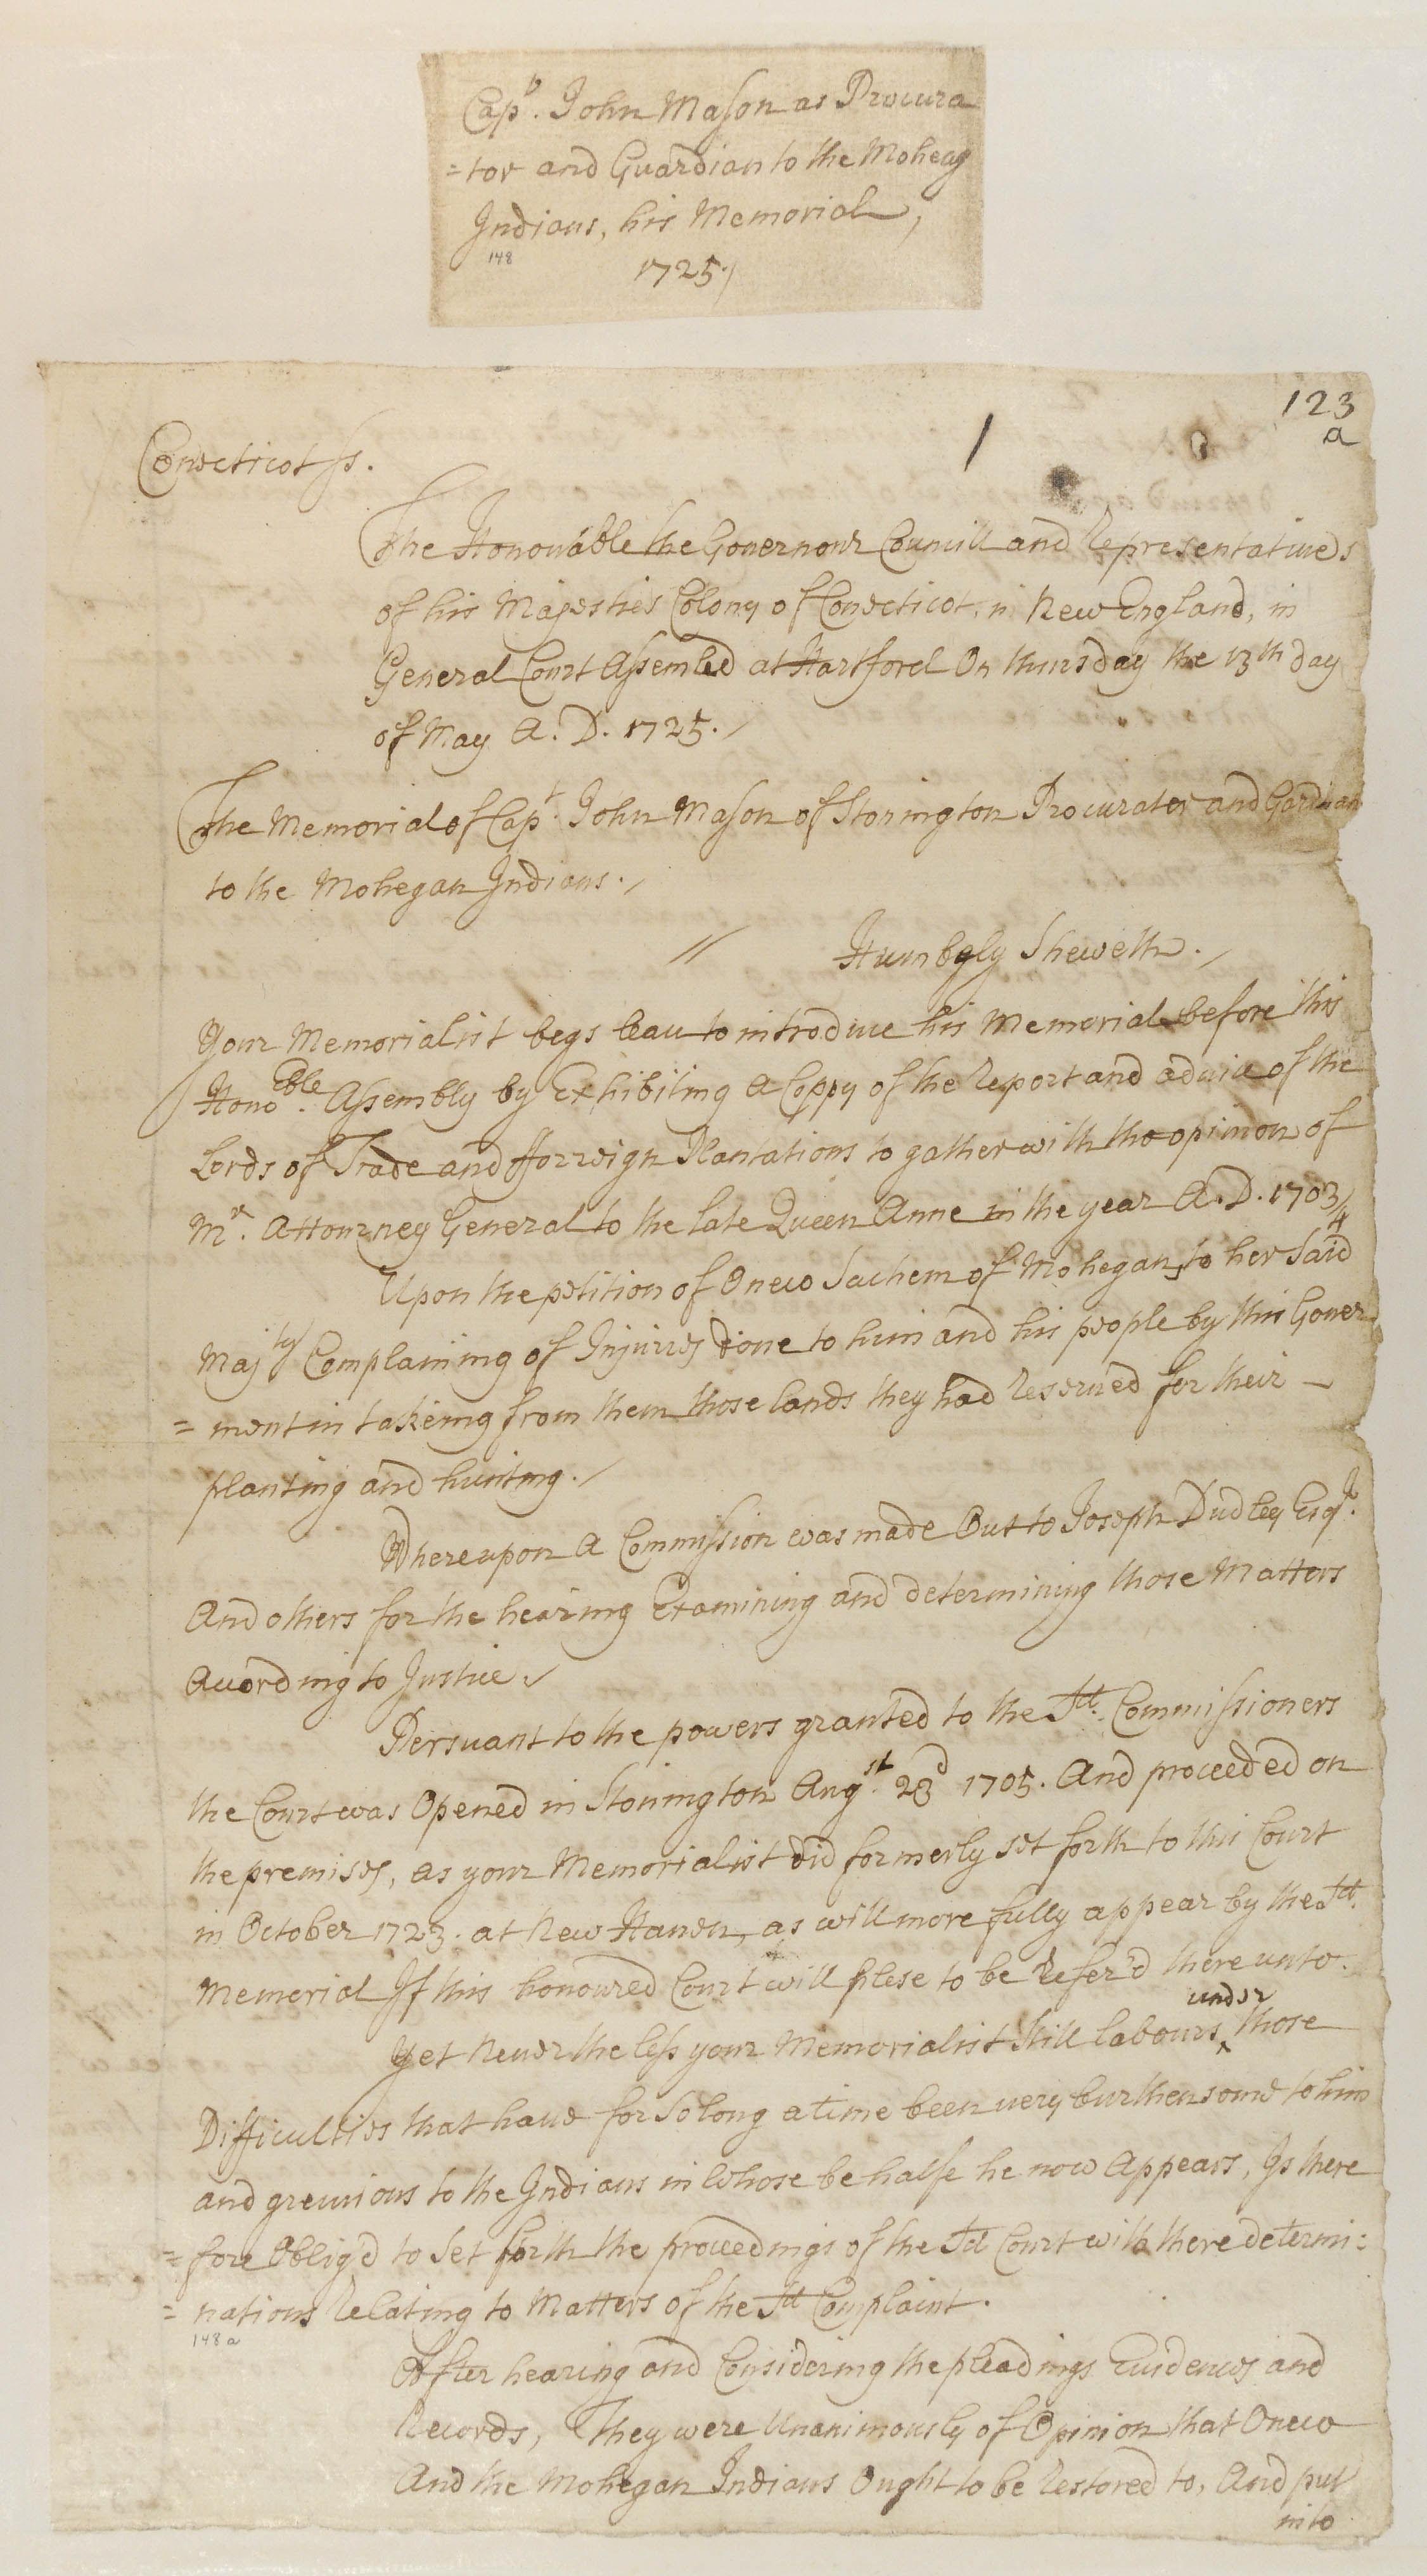 Capt. John Mason as Procura
=tor and Guardian to the Moheag
Indians, his Memorial,
148
1725.
123
a
1
Conecticot ss.
The Honouable the Governour Councill and Representatives
of his Majesties Colony of Conecticot, in New England, in
General Court Assembled at Hartford On thursday the 13th day
of May A. D. 1725.
The Memorial of Capt. John Mason of Stonington Procurator and Gardian
to the Mohegan Indians.
Humbely Sheweth.
Your Memorialist begs leau to introduce his Memorial before this
Honoeble. Assembly by Exhibiting a Coppy of the Report and advice of the
Lords of Trade and fforreign Plantations to gather with the opinion of
Mr. Attourney General to the late Queen Anne in the year A. D. 1703/4
Upon the petition of Oneco Sachem of Mohegan, to her Said
Majty Complaining of Injuries done to him and his people by this Gover
=ment in takeing from them those lands they had Reserued for their
planting and hunting.
Whereupon a Commission was made Out to Joseph Dudley Esqr.
And others for the hearing Examining and determining those Matters
Acording to Justice.
Persuant to the powers granted to the Sd. Commissioners
the Court was Opened in Stonington Augst. 23d 1705. And proceeded on
the premises, as your Memorialist did formerly set forth to this Court
in October 1723. at New Hauen, as will more fully appear by the Sd.
Memorial If this honoured Court will plese to be Refer'd there unto.
under
Yet Neuer the less your Memorialist Still labours ‸ those
Difficulties that haue for So long a time been uery burthensome to him
and greuious to the Indians in Whose behalfe he now Appears, Is there
=fore Oblig'd to Set forth the proceedings of the Sd Court with there determi:
=nations Relating to Matters of the Sd Complaint.
148 a
After hearing and Considering the pleadings Euidences and
Records, They were Unanimously of Opinion that Oneco
And the Mohegan Indians Ought to be Restored to, And put
into